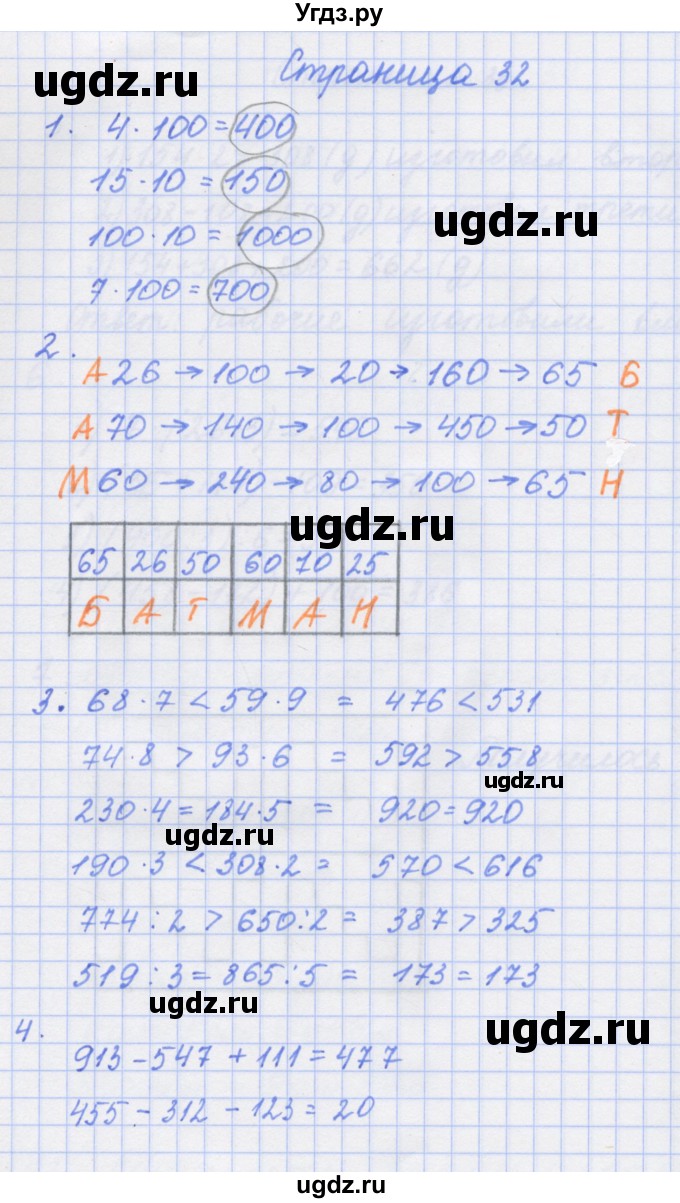 Угдз.ру
Страница 32
ugdz.ru
1. 4·100=400
15·10=150
ugdz.ru
100·10=1000
7·100=700
2.
А 26→100→20→160→65 Б
А 70→140→100→450→50 Т
М 60→240→80→100→65 Н
ugdz.ru
65 26 50 60 70 25
Б А Т М А Н
3. 68·7<59·9 = 476<531
74·8>93·6 = 592>558
ugdz.ru
230·4=184·5 = 920=920
ugdz.ru
190·3<308·2= 570<616
774:2>650:2= 387>325
519:3=865:5= 173=173
ugdz.ru
4.
ugdz.ru
913-547+111=477
455-312-123=20
ugdz.ru